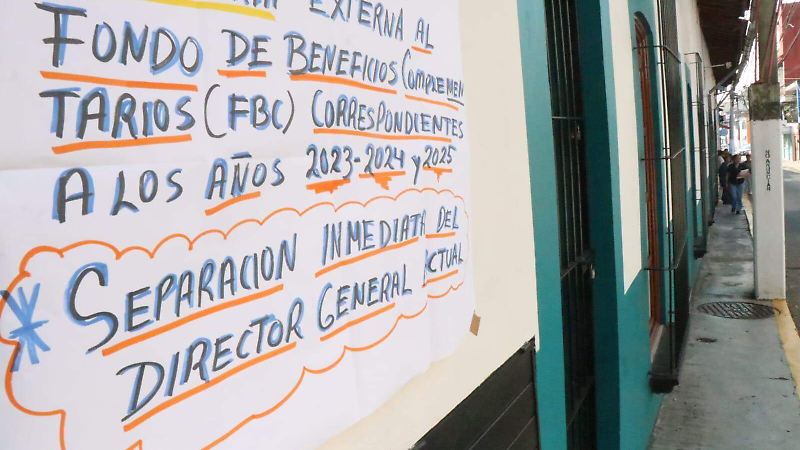 EXTERNA AL
FONDO DE BENEFICIOS COMPLEMEN
TARIOS (FBC) CORRESPONDIENTES
A LOS AÑOS 2023-2024 y 2025
* SEPARACION INMEDIATA DEL
DIRECTOR GENERAL ACTUAL